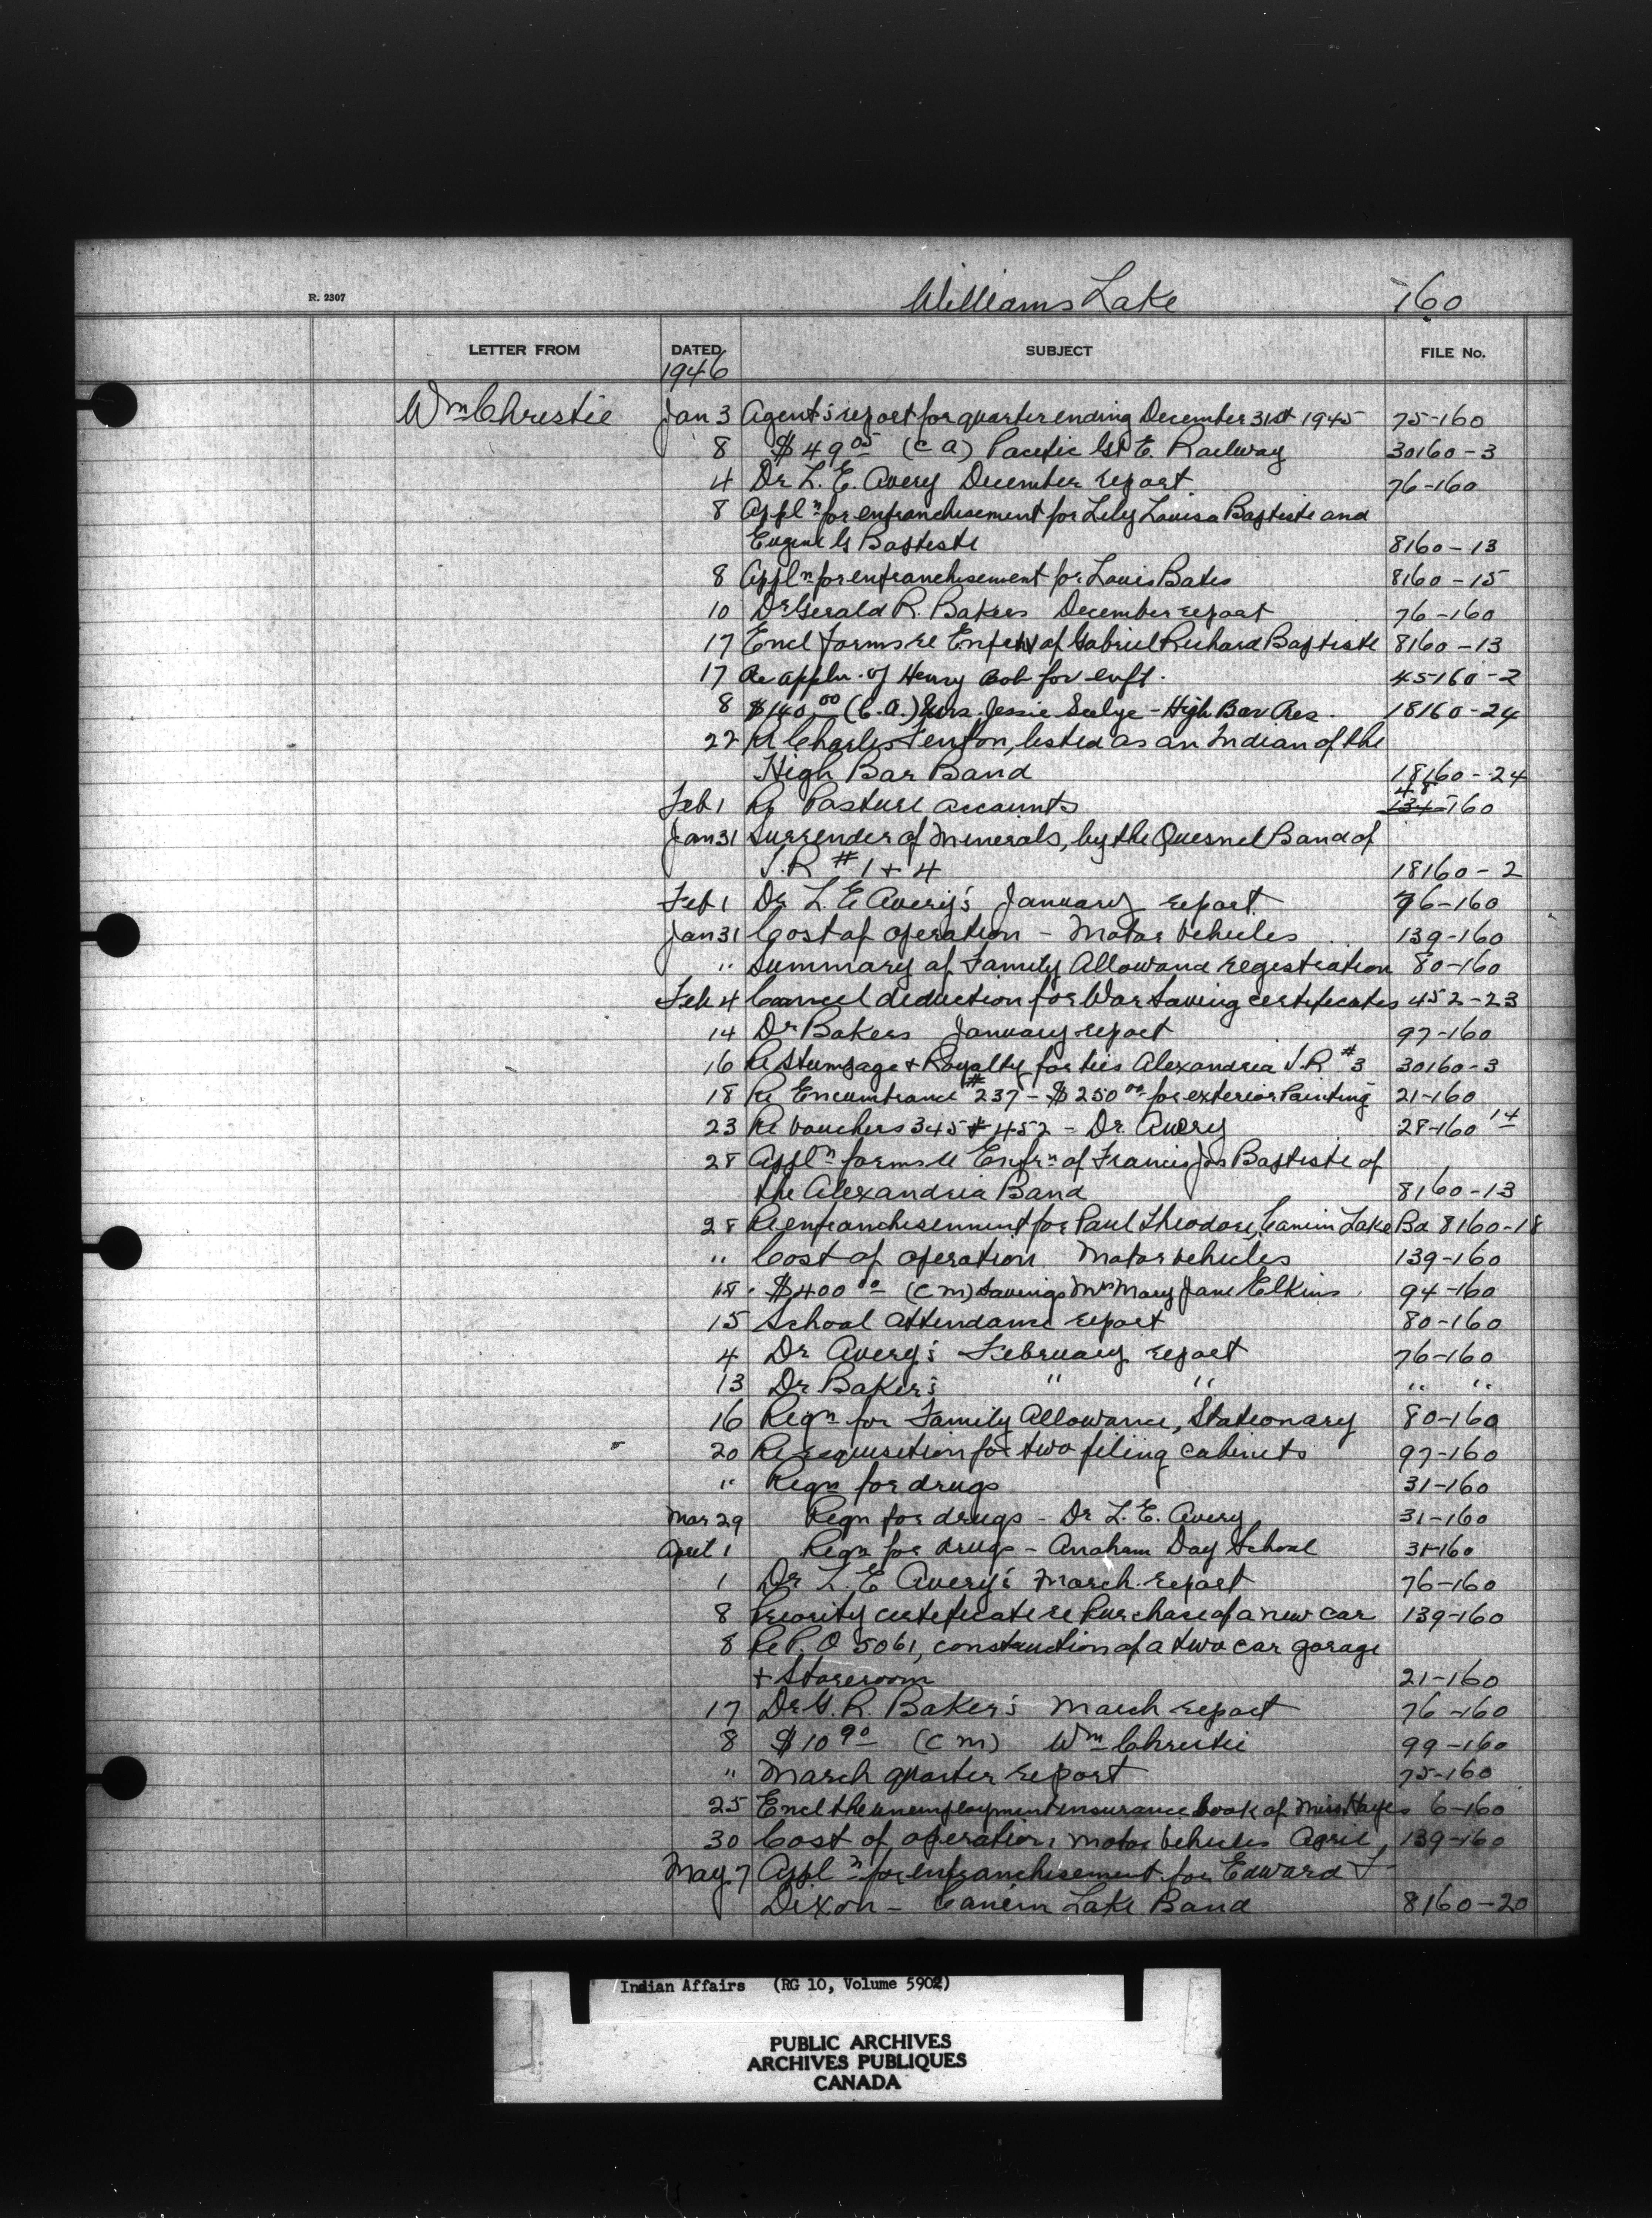 R. 2307
Williams Lake 160
LETTER FROM DATED SUBJECT FILE No.
1946
Wm Christie Jan 3 Agent's report for quarter ending December 31st 1945 75-160
8 $49.05 (C A) Pacific Gt E. Railway 30160-3
4 Dr L. E. Avery December report 76-160
8 Appln for enfranchisement for Lily Louisa Baptiste and
Eugene G Baptiste 8160-13
8 Appln for enfranchisement for Louis Bates 8160-15
10 Dr Gerald R. Bakers December report 76-160
17 Encl forms re Enfn of Gabriel Richard Baptiste 8160-13
17 Re appln. of Henry Bob for enft. 45160-2
8 $140.00 (C.A.) Mrs. Jessie Seelye - High Bar Res. 18160-24
22 Re Charles Fenton, listed as an Indian of the
High Bar Band 18160-24
Feb 1 Re Pasture accounts 48-160
Jan 31 Surrender of Minerals, by the Quesnel Band of
I.R #1 + 4 18160-2
Feb 1 Dr L. E Avery's January report. 76-160
Jan 31 Cost of operation - Motor Vehicles 139-160
" Summary of Family Allowance registration 80-160
Feb 4 Cancel deduction for War Saving certificates 452-23
14 Dr Bakers January report 97-160
16 Re Stumpage + Royalty for ties Alexandria I.R #3 30160-3
18 Re Encumbrance #237 - $250.00 for exterior Painting 21-160
23 Re Vouchers 345 + 452 - Dr. Avery 28-160 14
28 Appln forms re Enfrn of Francis Jos Baptiste of
the Alexandria Band 8160-13
28 Re enfranchisement for Paul Theodore, Canim Lake Bd 8160-18
" Cost of operation Motor vehicles 139-160
18 $400.00 (C M) Savings Mrs Mary Jane Elkins 94-160
15 School attendance report 80-160
4 Dr Avery's February report 76-160
13 Dr Baker's " " " "
16 Reqn for Family Allowance, Stationary 80-160
20 Re requisition for two filing cabinets 97-160
" Reqn for drugs 31-160
Mar 29 Reqn for drugs - Dr L. E. Avery 31-160
April 1 Reqn for drugs - Anaham Day School 31-160
1 Dr L. E Avery's March report 76-160
8 Priority certificate re Purchase of a new car 139-160
8 Re P. O 5061, construction of a two car garage
+ Storeroom 21-160
17 Dr G. R. Baker's March report 76-160
8 $10.90 (C M) Wm Christie 99-160
" March quarter report 75-160
25 Encl the unemployment insurance book of Miss Hayes 6-160
30 Cost of operation motor vehicles April 139-160
May 7 Appln for enfranchisement for Edward F
Dixon - Canim Lake Band 8160-20
Indian Affairs (RG 10, Volume 5902)
PUBLIC ARCHIVES
ARCHIVES PUBLIQUES
CANADA